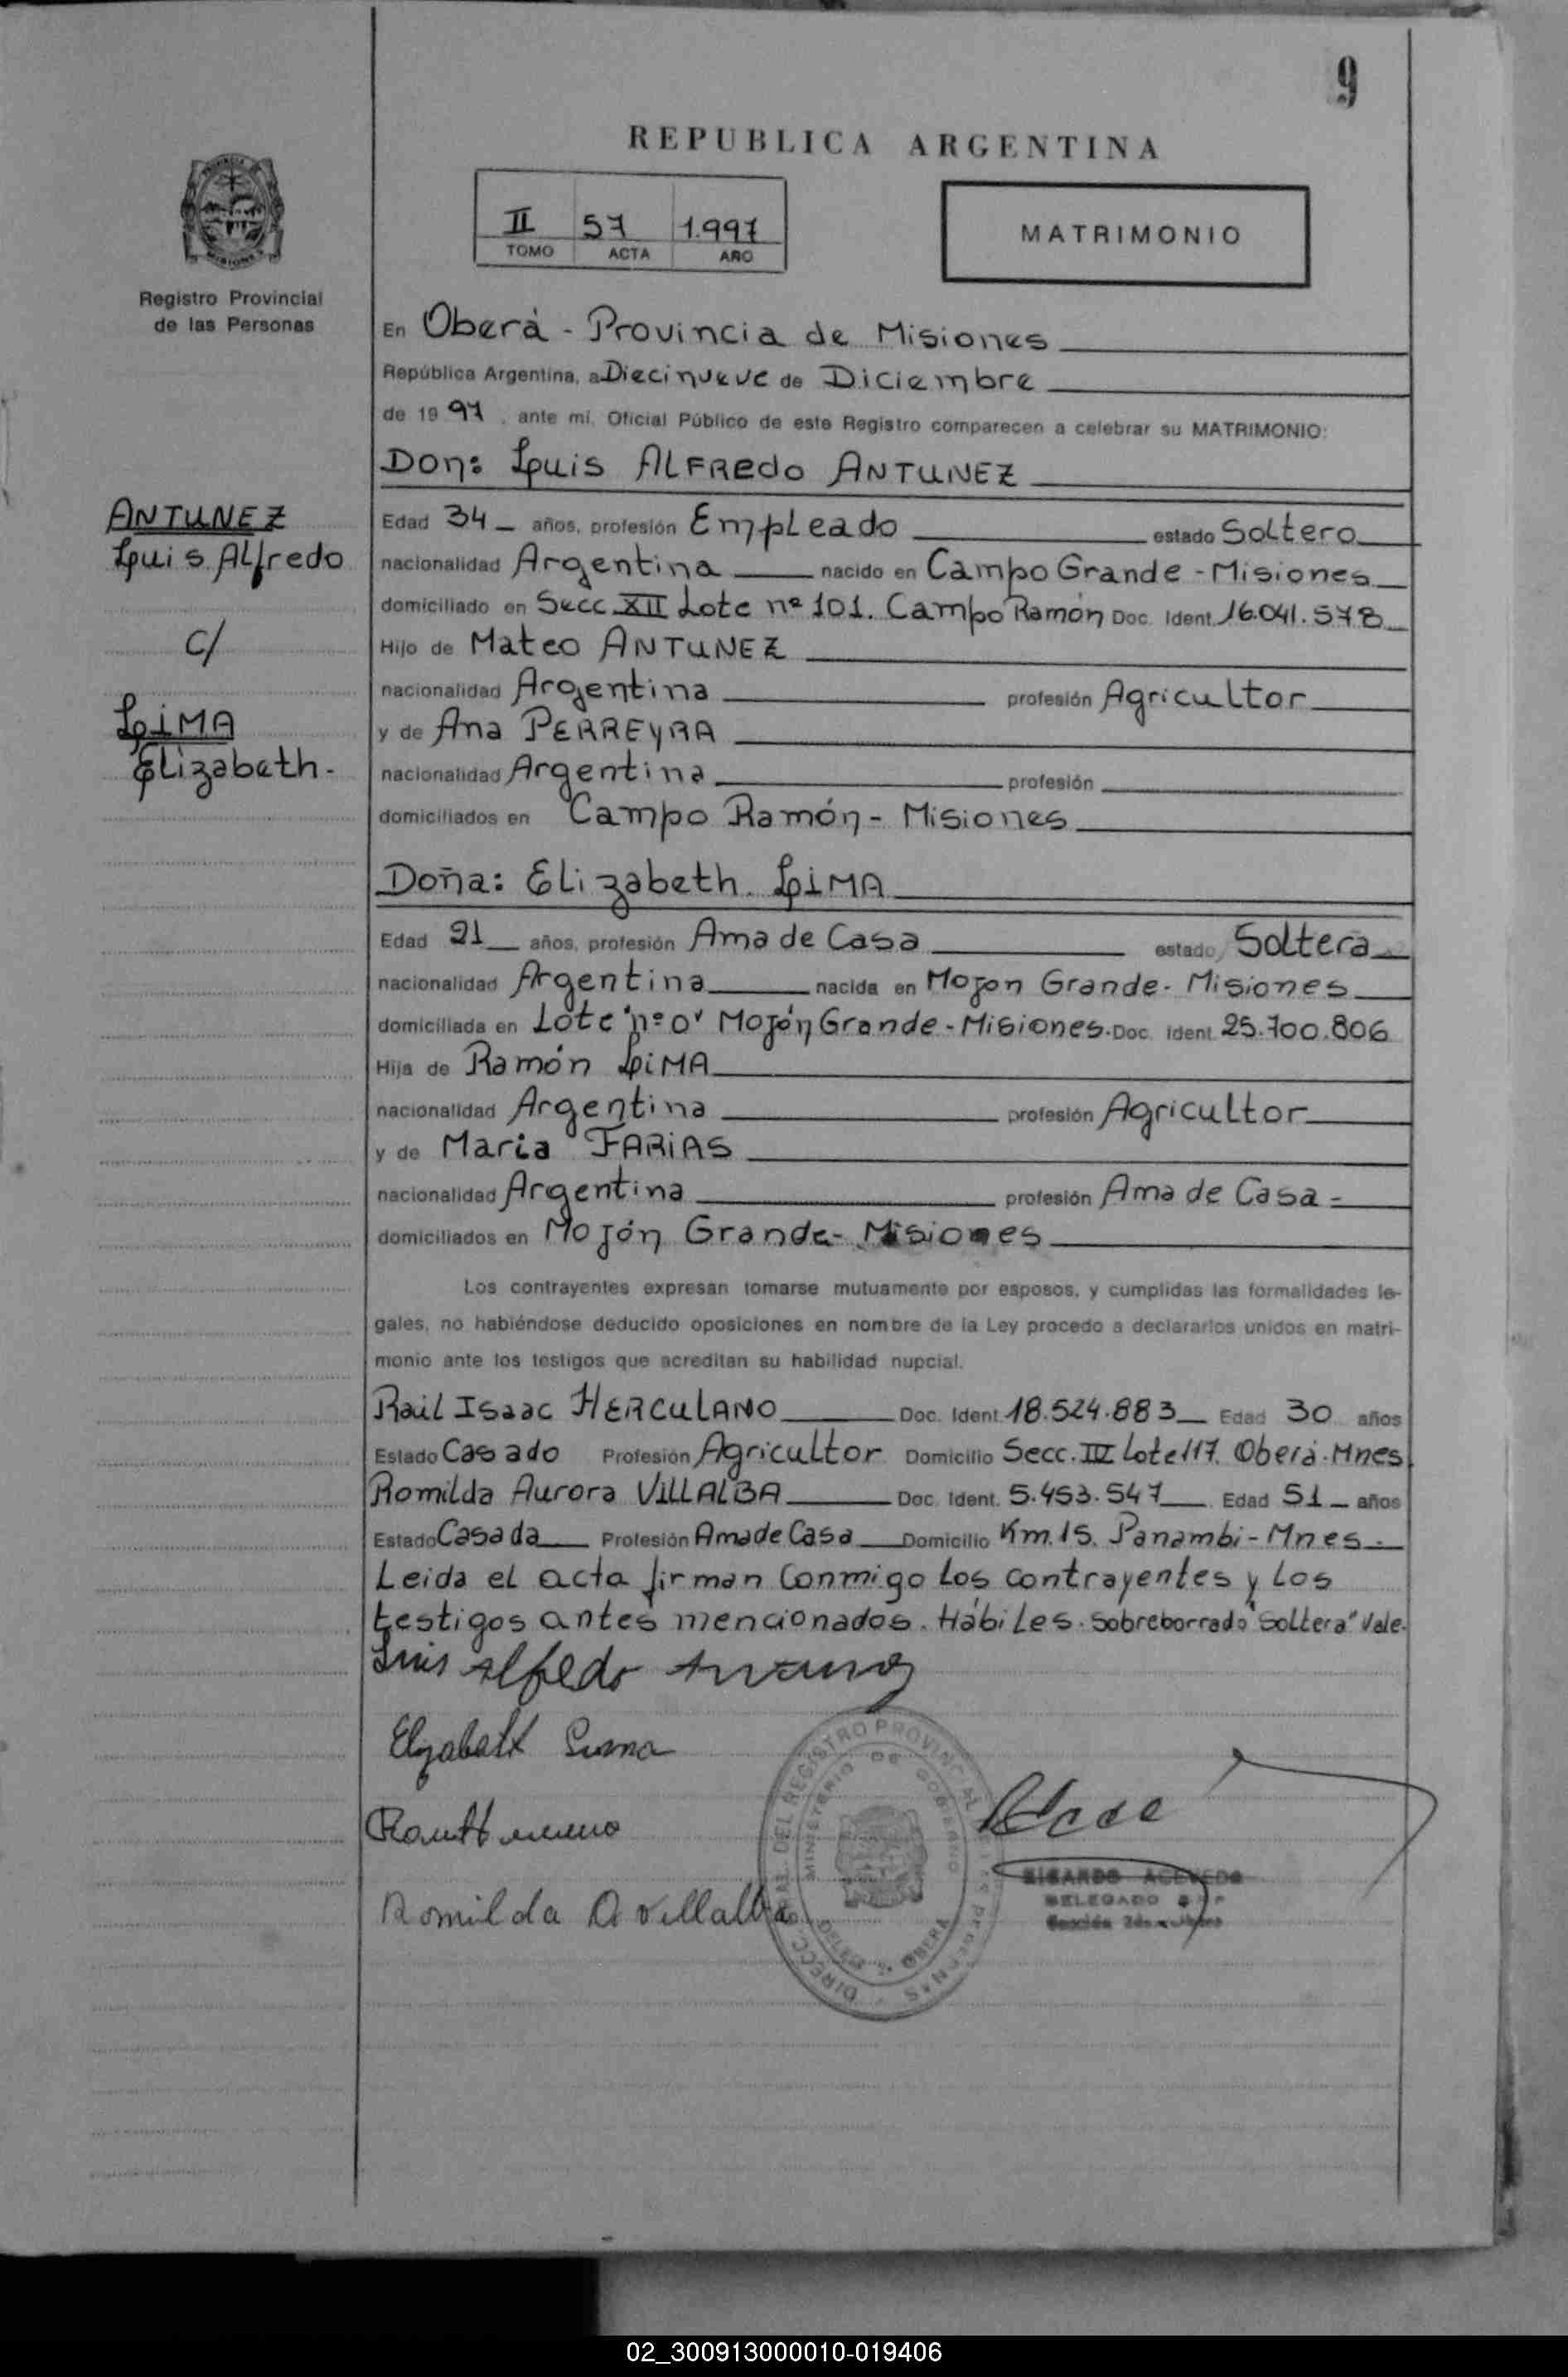 9
REPUBLICA ARGENTINA
II 57 1.997
TOMO ACTA AÑO
MATRIMONIO
Registro Provincial
de las Personas
En Oberá - Provincia de Misiones
República Argentina, a Diecinueve de Diciembre
de 1997, ante mí, Oficial Público de este Registro comparecen a celebrar su MATRIMONIO:
Don: Luis ALFREDO ANTUNEZ
ANTUNEZ
Luis Alfredo
C/
LiMA
Elizabeth.
Edad 34 años, profesión Empleado estado Soltero
nacionalidad Argentina nacido en Campo Grande - Misiones
domiciliado en Secc. XII Lote nº 101. Campo Ramón Doc. Ident. 16.041.578
Hijo de Mateo ANTUNEZ
nacionalidad Argentina profesión Agricultor
y de Ana PERREYRA
nacionalidad Argentina profesión
domiciliados en Campo Ramón - Misiones
Doña: Elizabeth LiMA
Edad 21 años, profesión Ama de Casa estado Soltera
nacionalidad Argentina nacida en Mojon Grande - Misiones
domiciliada en Lote "nº 0" Mojón Grande - Misiones. Doc. Ident. 25.700.806
Hija de Ramón LiMA
nacionalidad Argentina profesión Agricultor
y de Maria FARiAS
nacionalidad Argentina profesión Ama de Casa -
domiciliados en Mojón Grande - Misiones
Los contrayentes expresan tomarse mutuamente por esposos, y cumplidas las formalidades le-
gales, no habiéndose deducido oposiciones en nombre de la Ley procedo a declararlos unidos en matri-
monio ante los testigos que acreditan su habilidad nupcial.
Raúl Isaac HERCULANO Doc. Ident. 18.524.883 Edad 30 años
Estado Casado Profesión Agricultor Domicilio Secc. IV Lote 117. Oberá. Mnes
Romilda Aurora VILLALBA Doc. Ident. 5.453.547 Edad 51 años
Estado Casada Profesión Ama de Casa Domicilio Km. 15. Panambi - Mnes.
Leida el acta firman Conmigo Los contrayentes y Los
testigos antes mencionados. Hábiles. Sobreborrado "Soltera" Vale.
Luis Alfredo Antunez
Elizabeth Lima
Romilda A Villalba
DIRECC. GRAL. DEL REGISTRO PROVINCIAL DE LAS PERSONAS
MINISTERIO DE GOBIERNO
DELEG. OBERA
RICARDO ACEVEDO
DELEGADO
02_300913000010-019406